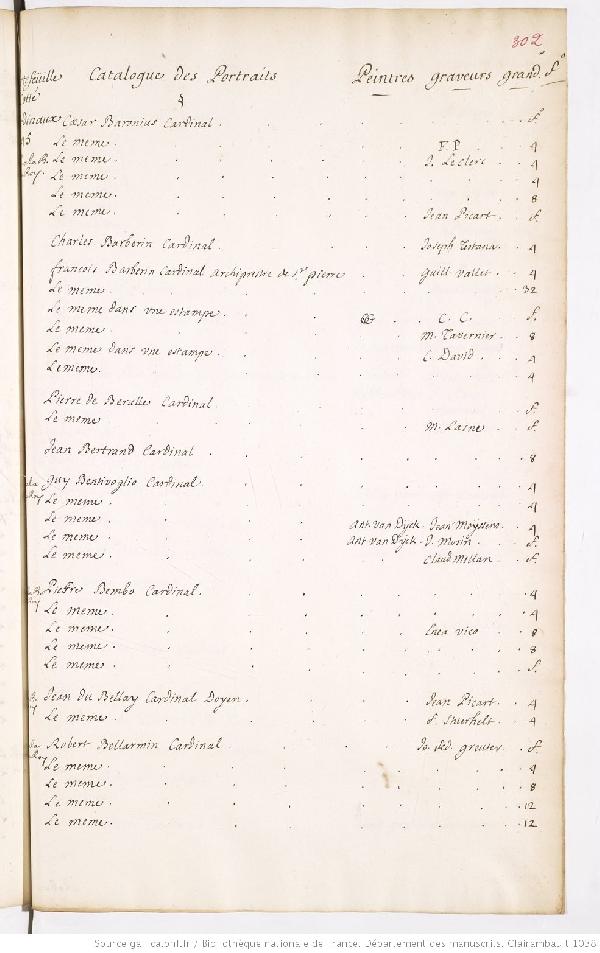 302
Catalogue des Portraits Peintres graveurs grand.r f.o
4
Cæsar Baronius Cardinal. f.
Le meme. F. P. 4
Le meme. J. Le Clerc 4
Le meme. 4
Le meme. 8
Le meme. Jean Picart. f.
Charles Barberin Cardinal. Joseph Testana. 4
francois Barberin Cardinal Archiprestre de St. pierre Guill Vallet. 4
Le meme. 32
Le meme dans vne estampe. C. C. f.
Le meme. M. Tavernier. 8
Le meme dans vne estampe. C. David. 4
Le meme. 4
Pierre de Berulle Cardinal. f.
Le meme. M. Lasne. f.
Jean Bertrand Cardinal 8
Guy Bentivoglio Cardinal. 4
Le meme. 4
Le meme. Ant. van Dyck. Jean Moyssens. 4
Le meme. Ant van Dyck. J. Morin. f.
Le meme. Claud Mellan. f.
Pietre Bembo Cardinal. 4
Le meme. 4
Le meme. Enea vico. 8
Le meme. 8
Le meme. f.
Jean du Bellay Cardinal Doyen. Jean Picart. 4
Le meme. 4
Robert Bellarmin Cardinal Jo. fed. greuter. f.
Le meme. 4
Le meme. 8
Le meme. 12
Le meme. 12
Source gallica.bnf.fr / Bibliothèque nationale de France. Département des manuscrits. Clairambault 1038